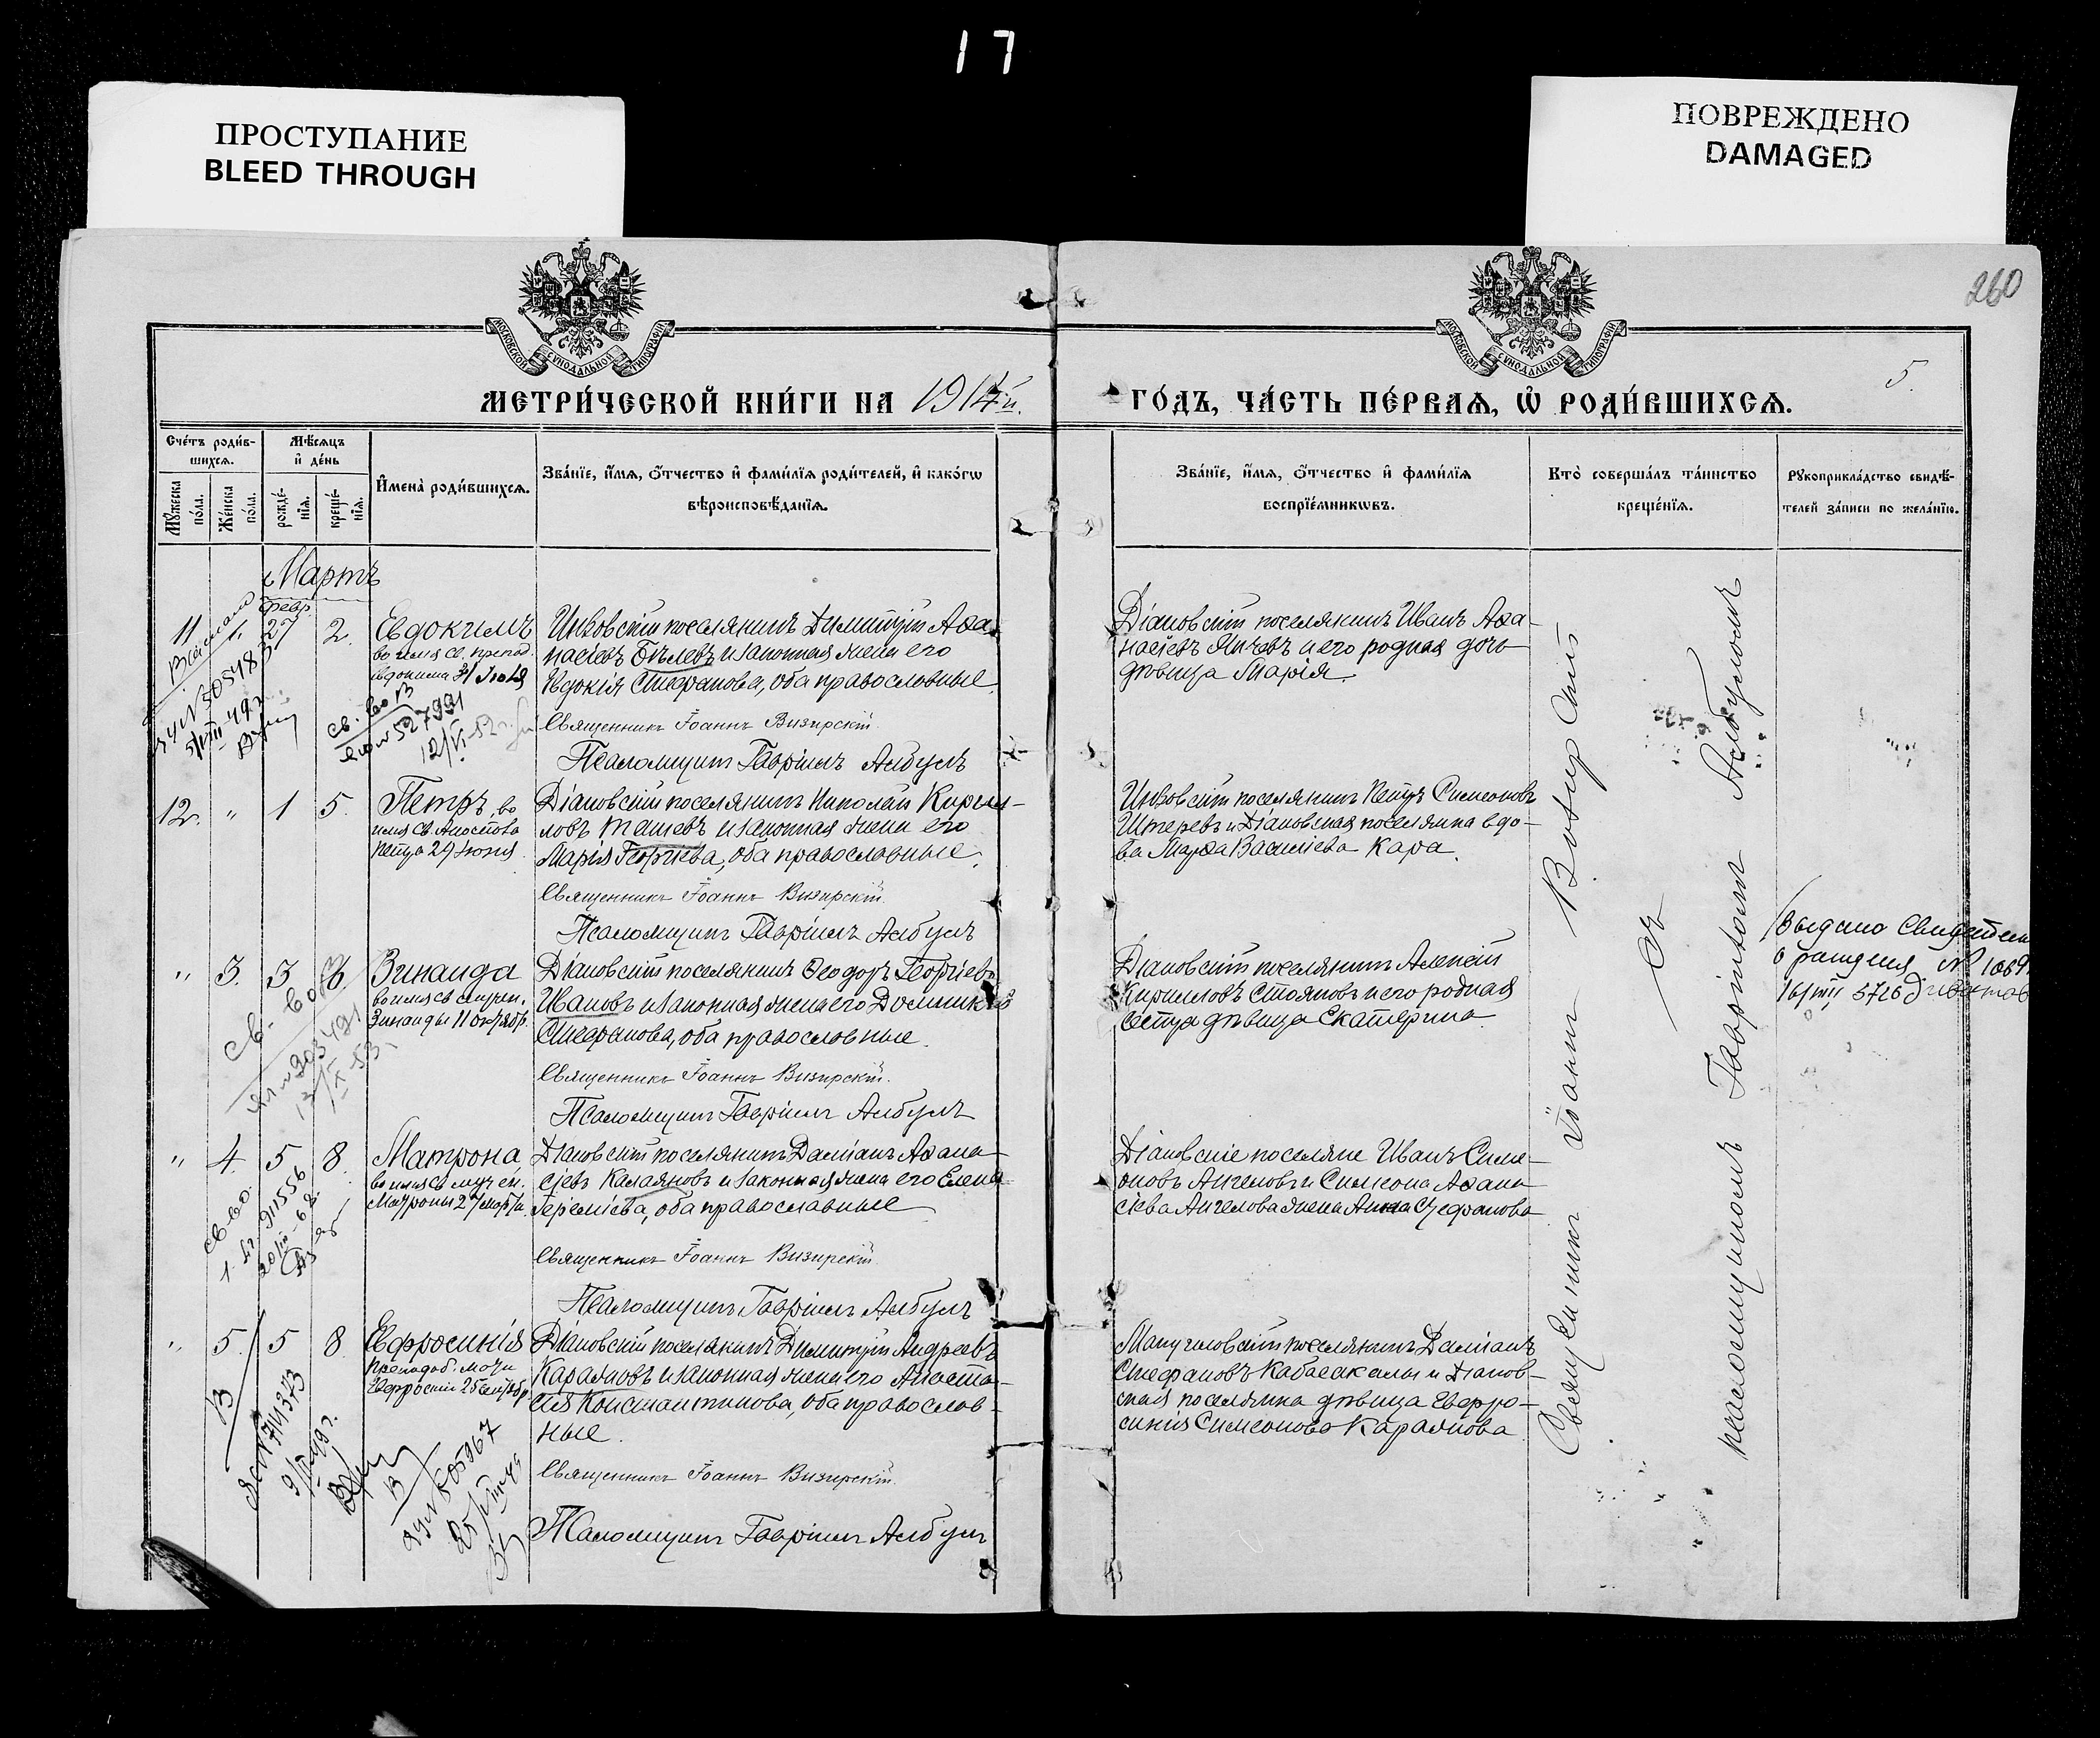 17
ПРОСТУПАНИЕ
BLEED THROUGH
ПОВРЕЖДЕНО
DAMAGED
260
МОСКОВСКОЙ СУНОДАЛЬНОЙ ТИПОГРАФІИ
МОСКОВСКОЙ СУНОДАЛЬНОЙ ТИПОГРАФІИ
5.
МЕТРИ́ЧЕСКОЙ КНИ́ГИ НА 1914й.
ГО́ДЪ, ЧА́СТЬ ПЕ́РВАЯ, Ѡ РОДИ́ВШИХСЯ.
Сче́тъ роди́в-
шихся.
Мѣ́сяцъ
и де́нь
Му́жеска
по́ла.
Же́нска
по́ла.
рожде́-
нїя.
креще́-
нїя.
Имена̀ роди́вшихся.
Зва́нїе, и́мя, о́тчество и фами́лїя роди́телей, и како́гѡ
вѣроисповѣ́данїя.
Зва́нїе, и́мя, о́тчество и фами́лїя
воспрїе́мникѡвъ.
Кто̀ соверша́лъ та́инство
креще́нїя.
Рукоприкла́дство свидѣ́-
телей за́писи по жела́нїю.
Мартъ
февр.
11 27 2. Евдокимъ
во имя св. препод.
Евдокима 31 Іюля
поселянинъ Димитрій Аѳа-
насіевъ Бѣлевъ и законная жена его
Евдокія Стефанова, оба православные.
Священникъ Іоаннъ Визирскій
Псаломщикъ Гавріилъ Албулъ
Діановскій поселянинъ Иванъ Аѳа-
насіевъ Янчевъ и его родная дочь
дѣвица Марія.
№ 505483
св-во
527991
12/VI-52
12. " 1 5. Петръ, во
имя св. Апостола
Петра 29 Іюня
Діановскій поселянинъ Николай Кирил-
ловъ Ташевъ и законная жена его
Марія Георгіева, оба православные.
Священникъ Іоаннъ Визирскій.
Псаломщикъ Гавріилъ Албулъ
поселянинъ Петръ Симеоновъ
Штеревъ и Діановская поселянка вдо-
ва Марѳа Василіева Кара.
" 3. 5 Зинаида
во имя св мучен.
Зинаиды 11 октябр.
Діановскій поселянинъ Ѳеодоръ Георгіевъ
Ивановъ и законная жена его
Стефанова, оба православные.
Священникъ Іоаннъ Визирскій.
Псаломщикъ Гавріилъ Албулъ
Діановскій поселянинъ Алексій
Кирилловъ Стояновъ и его родная
сестра дѣвица Екатерина.
Выдано Свидетель
о рождения № 1069
св-во
" 4. 5 8. Матрона
во имя св мучен.
Матроны 27 марта.
Діановскій поселянинъ Даміанъ Аѳана-
сіевъ Калаяновъ и законная жена его Елена
Іереміева, оба православные
Священникъ Іоаннъ Визирскій
Псаломщикъ Гавріилъ Албулъ
Діановскіе поселяне Иванъ Симе-
оновъ Ангеловъ и Симеона Аѳана-
сіева Ангелова жена Анна Стефанова
св-во.
911556
" 5. 5 8. Евфросинія
преподоб. мочи
Евфросиніи 25 сентябр.
Діановскій поселянинъ Димитрій Андреевъ
Караяновъ и законная жена его Анаста-
сія Константинова, оба православ-
ные.
Священникъ Іоаннъ Визирскій.
Псаломщикъ Гавріилъ Албулъ
поселянинъ Даміанъ
Стефановъ Кабасакалы и Діанов-
ская поселянка дѣвица Евфро-
синія Симеонова Караянова
№ 505967
Священникъ Іоаннъ Визирскій
съ
псаломщикомъ Гавріиломъ Албуломъ